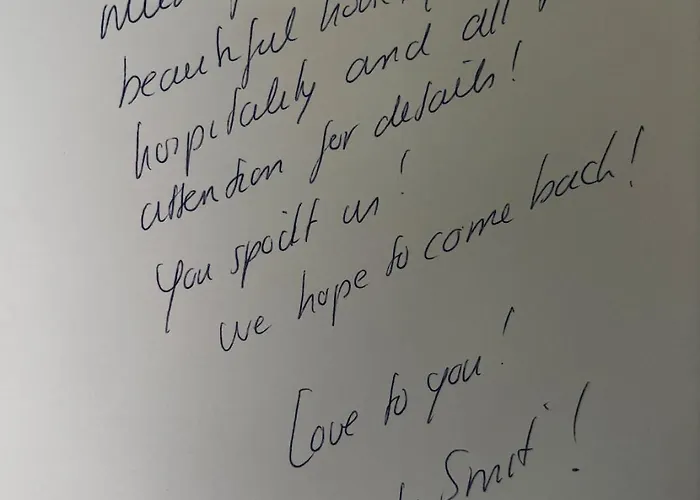 beautiful
hospitality and all
attention for details!
You spoilt us!
we hope to come back!
Love to you!
Smit!